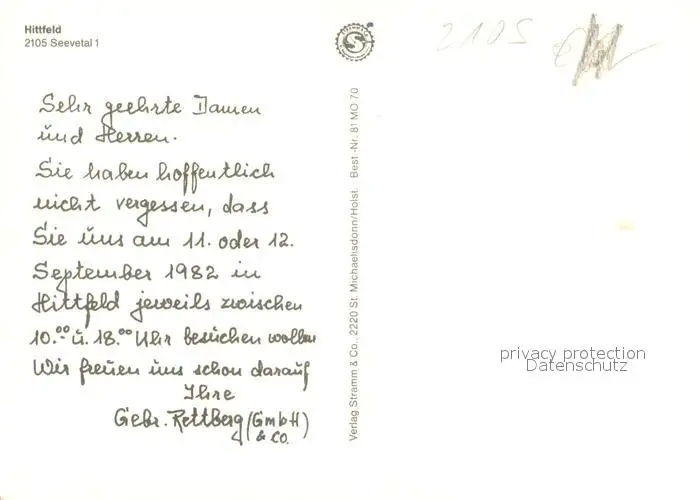 Hittfeld
2105 Seevetal 1
Sehr geehrte Damen
und Herren.
Sie haben hoffentlich
nicht vergessen, dass
Sie uns am 11. oder 12.
September 1982 in
Hittfeld jeweils zwischen
10.00 u. 18.00 Uhr besuchen wollen
Wir freuen uns schon darauf
Ihre
Gebr. Rettberg (GmbH)
& Co.
Verlag Stramm & Co., 2220 St. Michaelisdonn/Holst. Best.-Nr. 81 MO 70
2105
privacy protection
Datenschutz